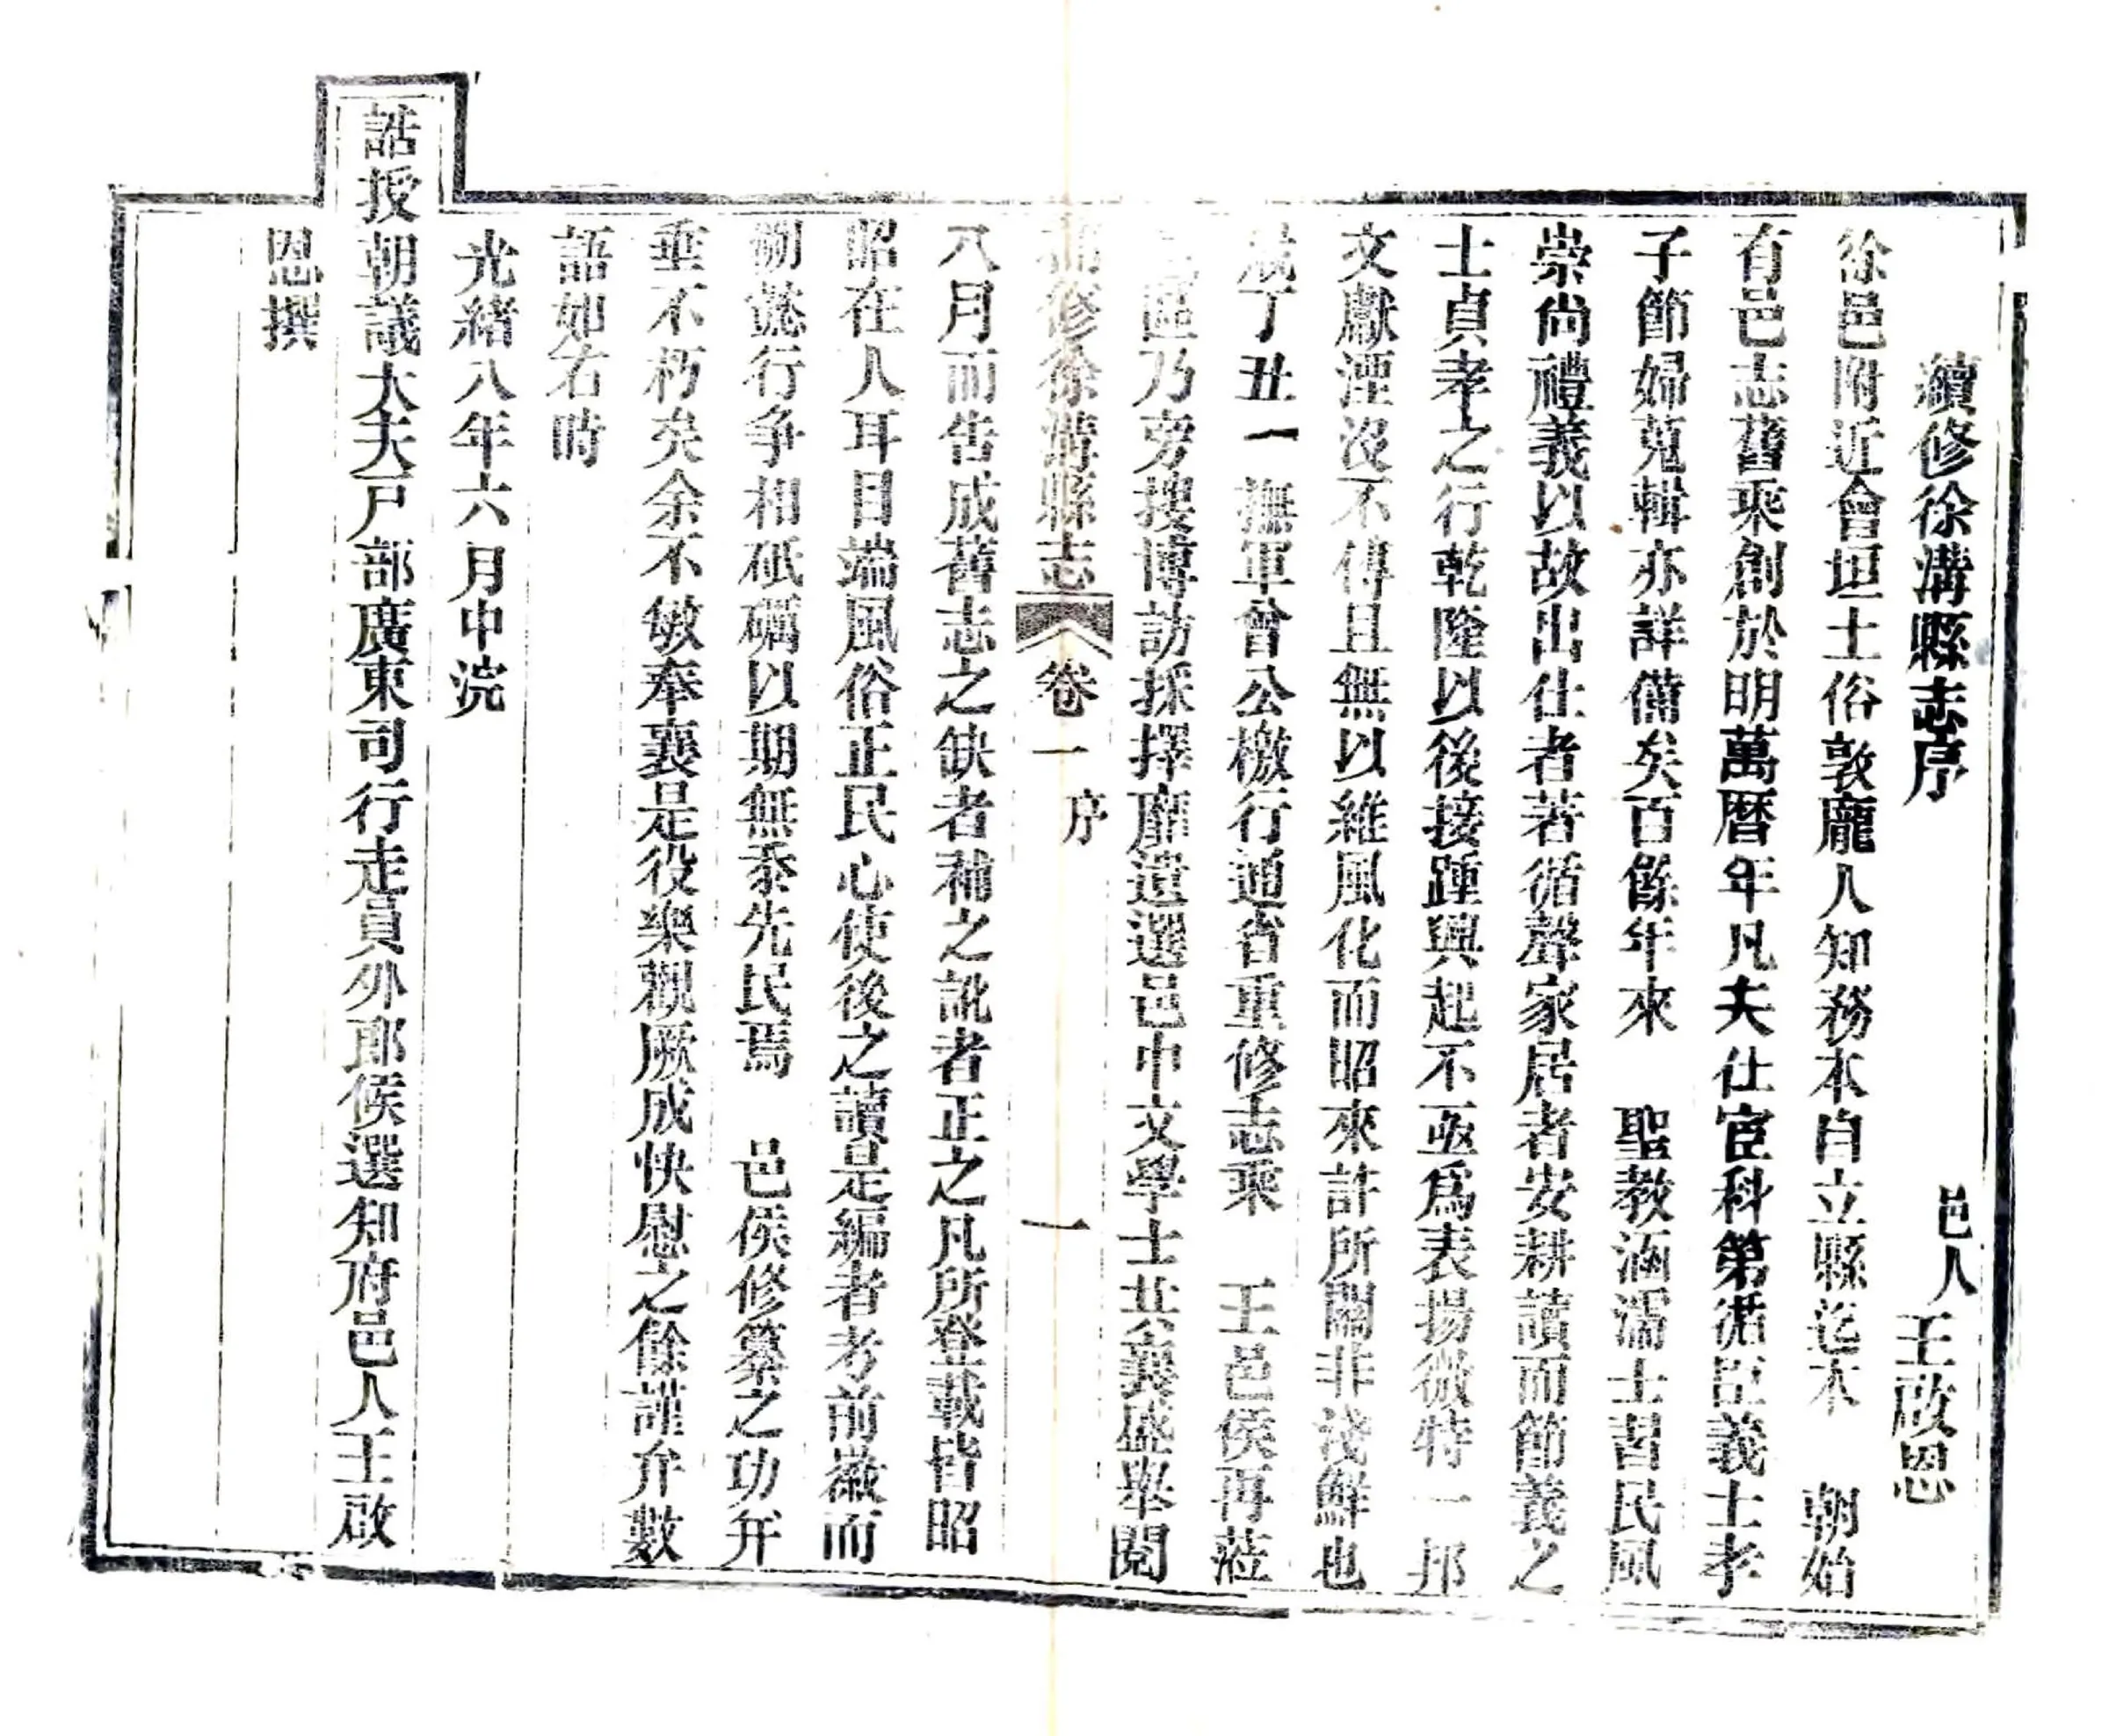 續修徐溝縣志序
邑人王啟恩
徐邑附近會垣土俗敦龐人知務本自立縣迄本　朝始
有邑志舊乘創於明萬曆年凡夫仕宦科第循臣義士孝
子節婦蒐輯亦詳備矣百餘年來　聖教涵濡士習民風
崇尚禮義以故出仕者著循聲家居者安耕讀而節義之
士貞孝之行乾隆以後接踵興起不亟爲表揚微特一邦
文獻湮沒不傳且無以維風化而昭來許所關非淺鮮也
歲丁丑　撫軍曾公檄行通省重修志乘　王邑侯再蒞
區乃旁搜博訪採擇靡遺選邑中文學士共襄盛舉閱
補修徐溝縣志　卷一　序　一
八月而告成舊志之缺者補之訛者正之凡所登載皆昭
昭在人耳目端風俗正民心使後之讀是編者考前徽而
懿行爭相砥礪以期無忝先民焉　邑侯修纂之功幷
垂不朽矣余不敏奉襄是役樂觀厥成快慰之餘謹弁數
語如右時
光緒八年六月中浣
誥授朝議大夫戶部廣東司行走員外郎候選知府邑人王啟
恩撰